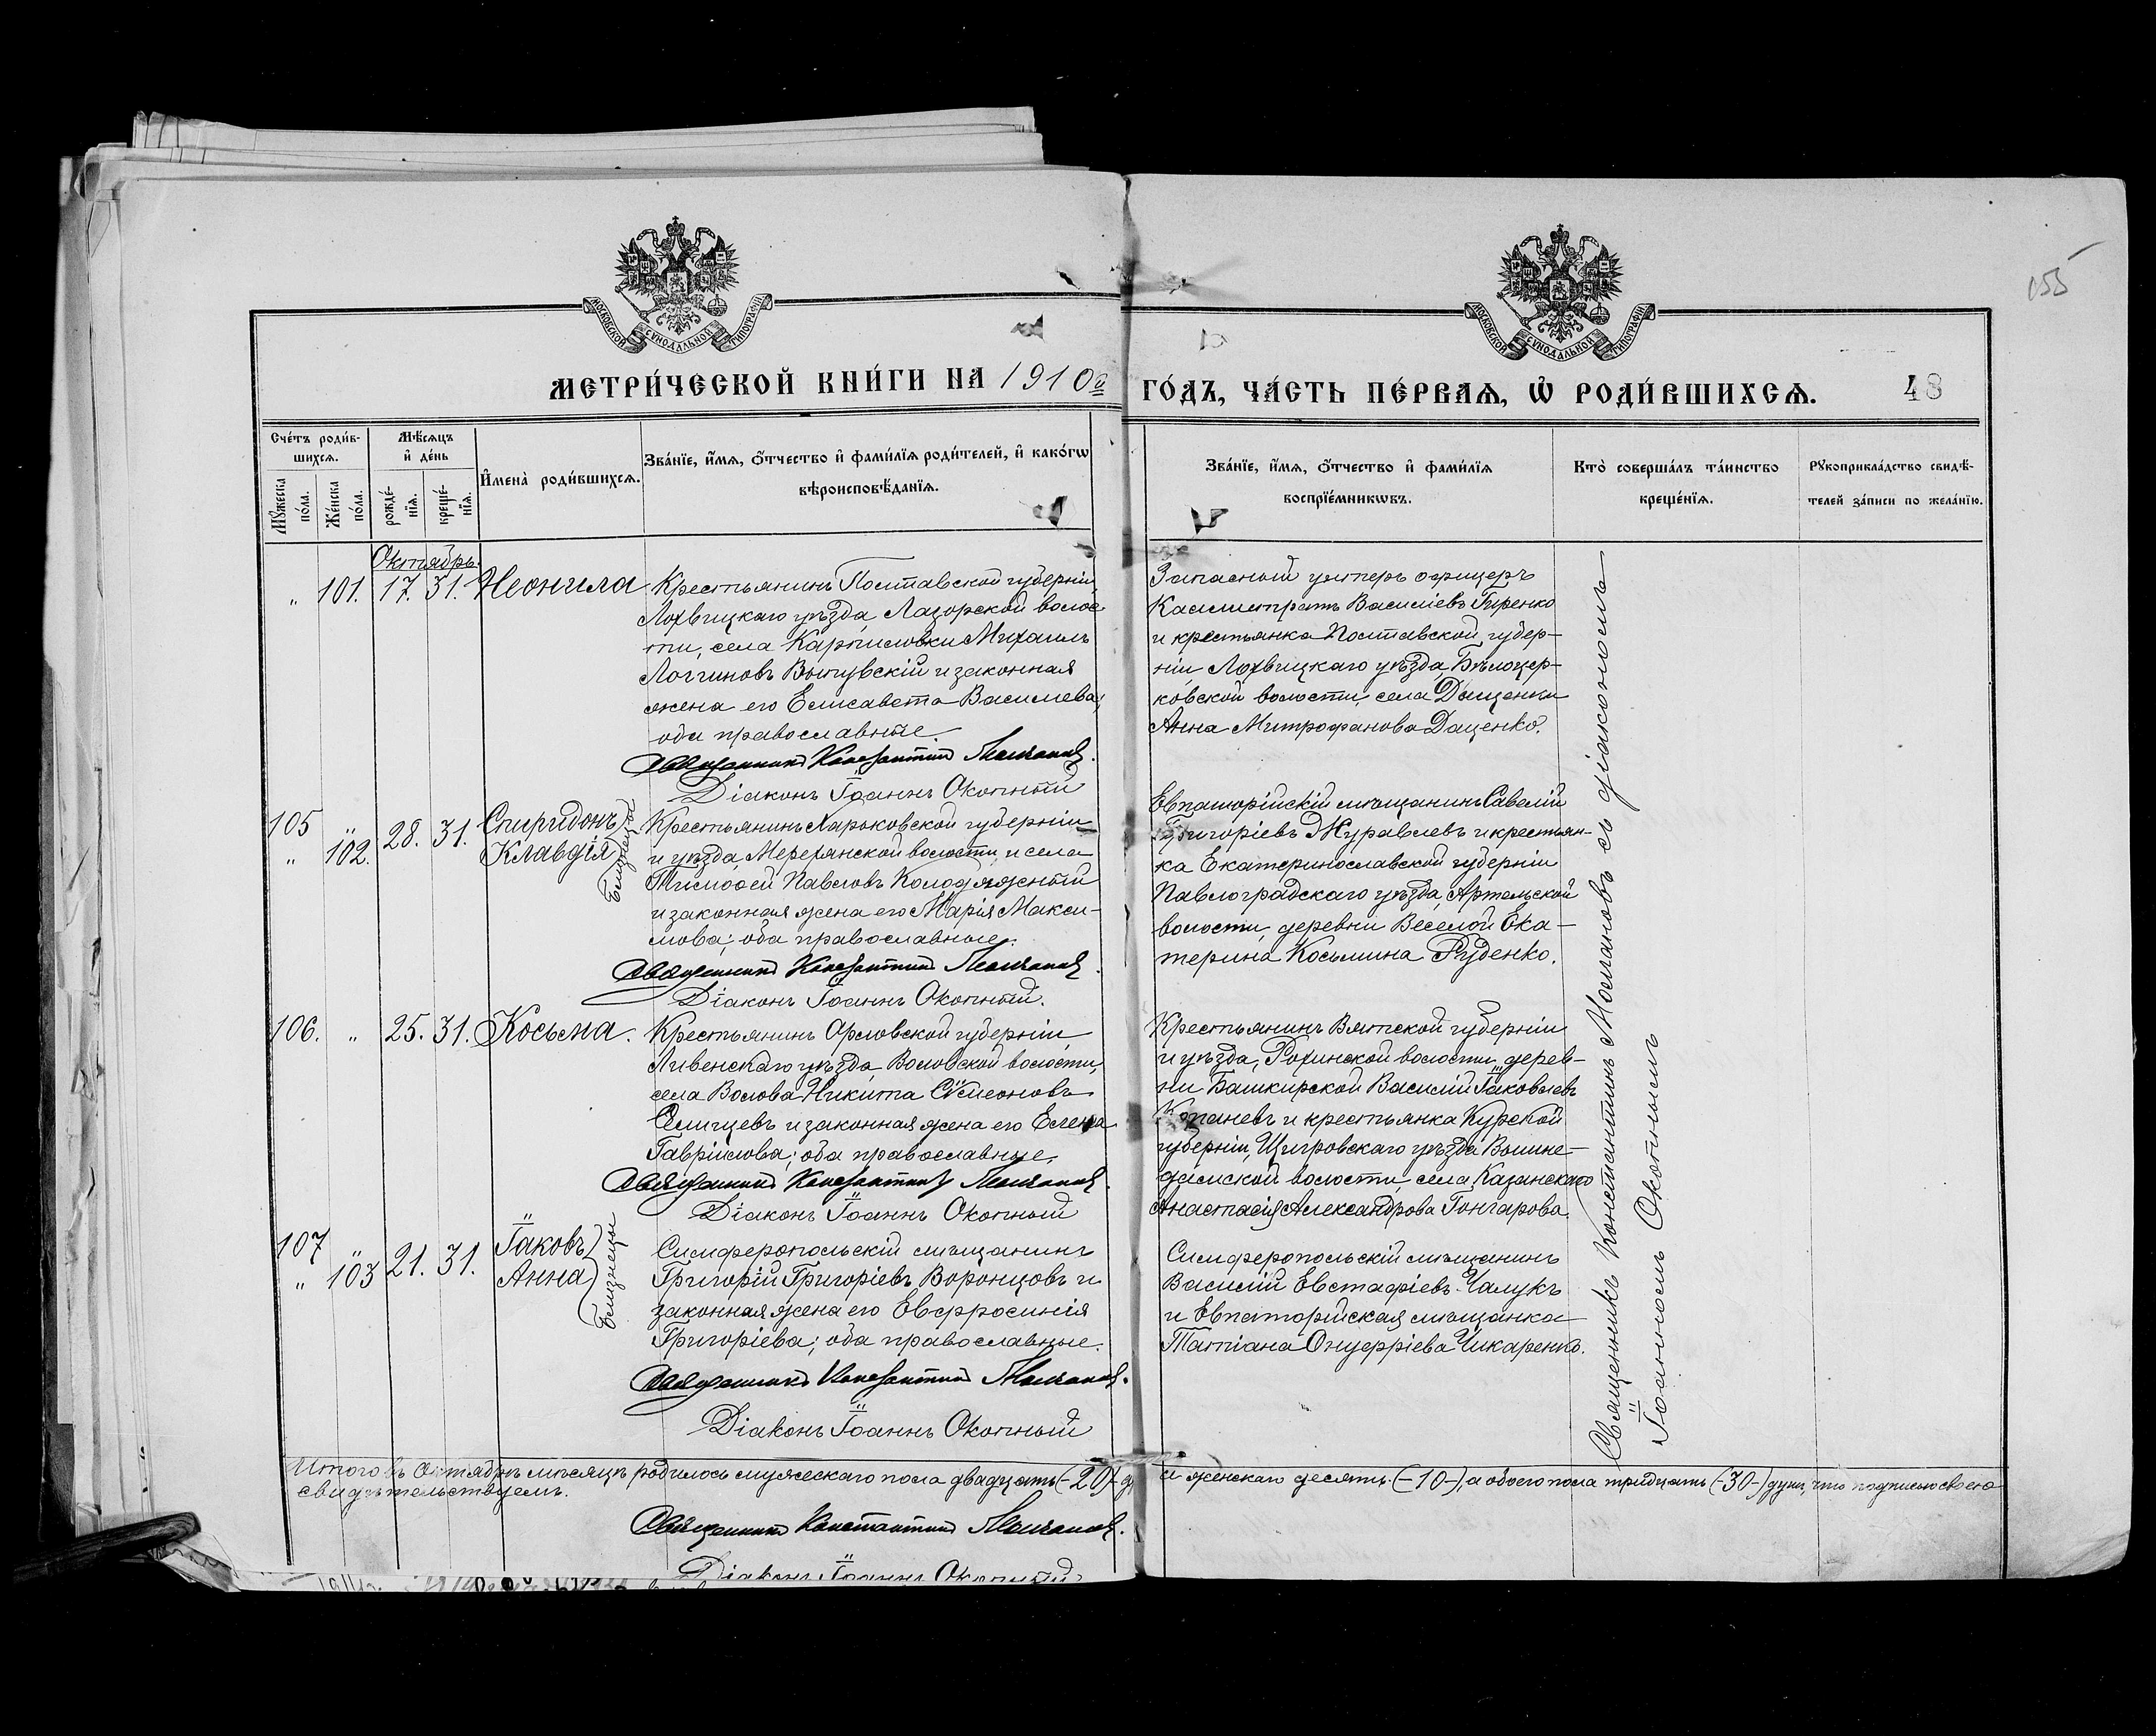 155
МОСКОВСКОЙ СѴНОДАЛЬНОЙ ТИПОГРАФІИ
МОСКОВСКОЙ СѴНОДАЛЬНОЙ ТИПОГРАФІИ
МЕТРИ́ЧЕСКОЙ КНИ́ГИ НА 1910й ГО́ДЪ, ЧА́СТЬ ПЕ́РВАѦ, Ѡ҆ РОДИ́ВШИХСѦ. 48
Сче́тъ роди́в-
шихсѧ.
Мꙋ́жеска по́ла.
Же́нска по́ла.
Мѣ́сѧцъ
и҆ де́нь
рожде́-
нїѧ.
креще́-
нїѧ.
И҆мена̀ роди́вшихсѧ.
Зва́нїе, и҆́мѧ, ѻ҆́тчество и҆ фами́лїѧ роди́телей, и҆ како́гѡ
вѣроисповѣ́данїѧ.
Зва́нїе, и҆́мѧ, ѻ҆́тчество и҆ фами́лїѧ
воспрїе́мникѡвъ.
Кто̀ соверша́лъ та́инство
креще́нїѧ.
Рꙋкоприкла́дство свидѣ́-
телей за́писи по жела́нїю.
Октябрь.
" 101. 17. 31. Неонила
Крестьянинъ Полтавской губерніи,
Лохвицкаго уѣзда, Лазорской волос-
ти, села Карпиловки Михаилъ
Логгиновъ и законная
жена его Елисавета Василиева;
оба православные.
Священникъ Константинъ Молчановъ.
Діаконъ Іоаннъ Окопный
Запасный унтеръ офицеръ
Каллистратъ Василіевъ Гиренко
и крестьянка Полтавской губер-
ніи, Лохвицкаго уѣзда, Бѣлоцер-
ковской волости, села Даценки
Анна Митрофанова Даценко.
105 " 28. 31. Спиридонъ
" 102. Клавдія
Близнецы
Крестьянинъ Харьковской губерніи
и уѣзда, Мерефянской волости и села
Тимоѳей Павловъ Колодяжный
и законная жена его Марія Макси-
мова; оба православные.
Священникъ Константинъ Молчановъ.
Діаконъ Іоаннъ Окопный.
Евпаторійскій мѣщанинъ Савелій
Григоріевъ Журавлевъ и крестьян-
ка Екатеринославской губерніи
Павлоградскаго уѣзда, Артельской
волости, деревни Веселой Ека-
терина Косьмина Руденко.
106. " 25. 31. Косьма.
Крестьянинъ Орловской губерніи,
Ливенскаго уѣзда, Воловской волости,
села Волова Никита Сѵмеоновъ
и законная жена его Елена
Гавріилова; оба православные.
Священникъ Константинъ Молчановъ.
Діаконъ Іоаннъ Окопный
Крестьянинъ Вятской губерніи
и уѣзда, волости, дерев-
ни Башкирской Василій Іаковлевъ
Копаневъ и крестьянка Курской
губерніи, Щигровскаго уѣзда
волости, села Казанскаго
Анастасія Александрова Гончарова.
107 " 21. 31. Іаковъ
" 103 Анна
Близнецы
Симферопольскій мѣщанинъ
Григорій Григоріевъ Воронцовъ и
законная жена его Евфросинія
Григоріева; оба православные.
Священникъ Константинъ Молчановъ.
Діаконъ Іоаннъ Окопный
Симферопольскій мѣщанинъ
Василій Евстафіевъ Чалукъ
и Евпаторійская мѣщанка
Татіана Онуфріева Чикаренко.
Священникъ Константинъ Молчановъ съ діакономъ
Іоанномъ Окопнымъ
Итого въ Октябрѣ мѣсяцѣ родилось мужескаго пола двадцать (-20-) и женскаго десять (-10-), а обоего пола тридцать (-30-) душъ, что подписью своею
свидѣтельствуемъ.
Священникъ Константинъ Молчановъ.
Діаконъ Іоаннъ Окопный